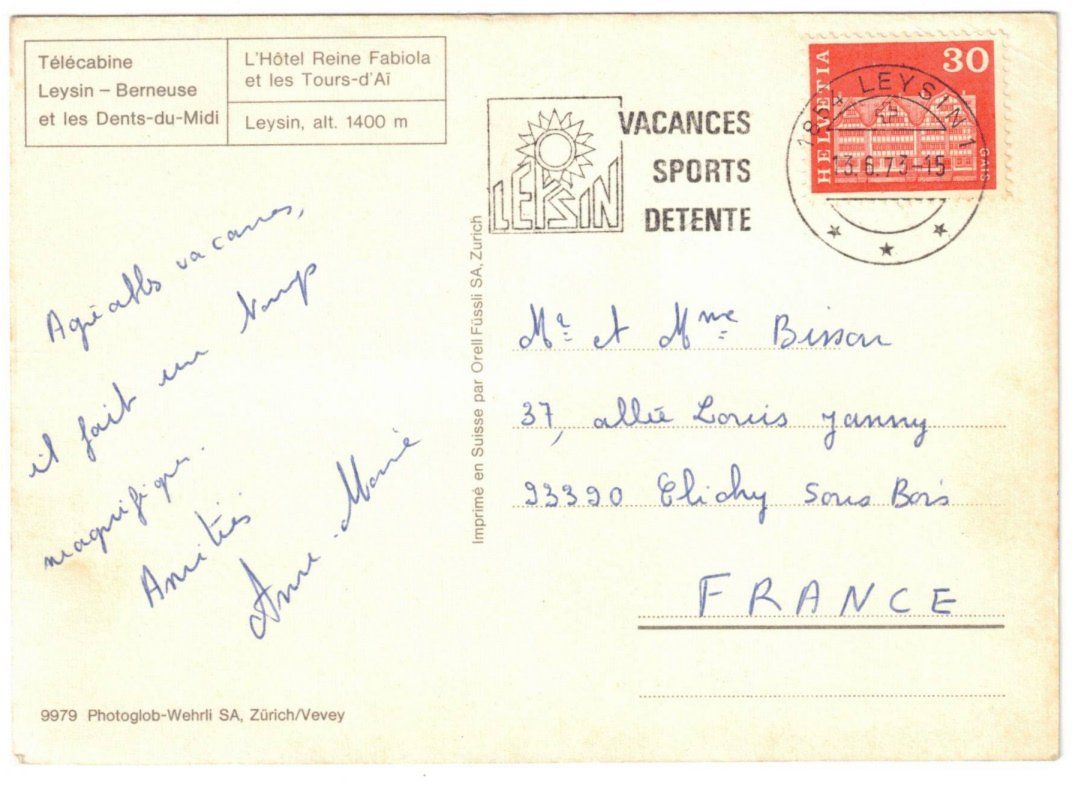 Télécabine
Leysin – Berneuse
et les Dents-du-Midi
L'Hôtel Reine Fabiola
et les Tours-d'Aï
Leysin, alt. 1400 m
LEYSIN
VACANCES
SPORTS
DETENTE
HELVETIA
30
GAIS
1854 LEYSIN 1
13.6.73-15
Agréables vacances,
il fait un temps
magnifique.
Amitiés
Anne-Marie
Imprimé en Suisse par Orell Füssli SA, Zurich
Mr et Mme Bisson
37, allée Louis Janny
93390 Clichy Sous Bois
FRANCE
9979 Photoglob-Wehrli SA, Zürich/Vevey